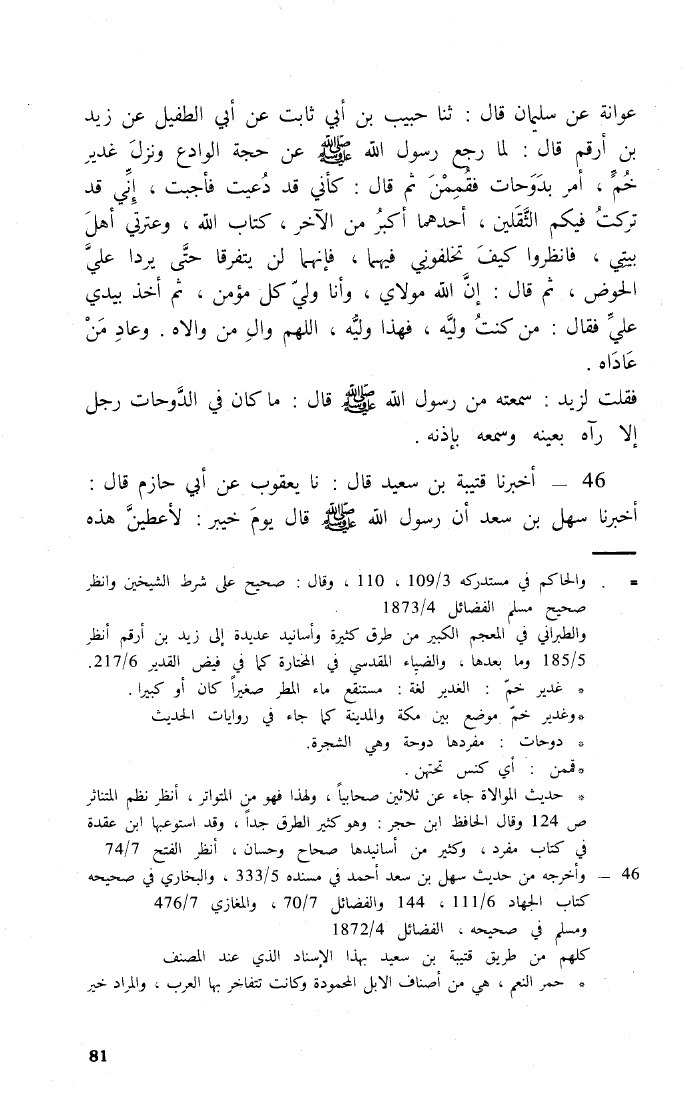 عوانة عن سليمان قال : ثنا حبيب بن أبي ثابت عن أبي الطفيل عن زيد
بن أرقم قال : لما رجع رسول الله ﷺ عن حجة الوادع ونزلَ غدير
خُمٍّ ، أمر بدَوحات فقُمِمْنَ ثم قال : كأني قد دُعيت فأجبت ، إنِّي قد
تركتُ فيكم الثَّقلَين ، أحدهما أكبرُ من الآخر ، كتاب الله ، وعترتي أهلَ
بيتي ، فانظروا كيفَ تخلفوني فيهما ، فإنهما لن يتفرقا حتَّى يردا عليَّ
الحوض ، ثم قال : إنَّ الله مولاي ، وأنا وليّ كل مؤمن ، ثم أخذ بيدي
عليٍّ فقال : من كنتُ وليَّه ، فهذا وليُّه ، اللهم والِ من والاه . وعادِ مَنْ
عَادَاه .
فقلت لزيد : سمعته من رسول الله ﷺ قال : ما كان في الدَّوحات رجل
إلا رآه بعينه وسمعه بإذنه .
46 – أخبرنا قتيبة بن سعيد قال : نا يعقوب عن أبي حازم قال :
أخبرنا سهل بن سعد أن رسول الله ﷺ قال يومَ خيبر : لأعطينَّ هذه
= . والحاكم في مستدركه 109/3 ، 110 ، وقال : صحيح على شرط الشيخين وانظر
صحيح مسلم الفضائل 1873/4
والطبراني في المعجم الكبير من طرق كثيرة وأسانيد عديدة إلى زيد بن أرقم أنظر
185/5 وما بعدها ، والضياء المقدسي في المختارة كما في فيض القدير 217/6.
* غدير خمّ : الغدير لغة : مستنقع ماء المطر صغيراً كان أو كبيرا .
*وغدير خمّ موضع بين مكة والمدينة كما جاء في روايات الحديث
* دوحات : مفردها دوحة وهي الشجرة.
*قممن : أي كنس تحتهن .
* حديث الموالاة جاء عن ثلاثين صحابياً ، ولهذا فهو من المتواتر ، أنظر نظم المتناثر
ص 124 وقال الحافظ ابن حجر : وهو كثير الطرق جداً ، وقد استوعبها ابن عقدة
في كتاب مفرد ، وكثير من أسانيدها صحاح وحسان ، أنظر الفتح 74/7
46 – وأخرجه من حديث سهل بن سعد أحمد في مسنده 333/5 ، والبخاري في صحيحه
كتاب الجهاد 111/6 ، 144 والفضائل 70/7 ، والمغازي 476/7
ومسلم في صحيحه ، الفضائل 1872/4
كلهم من طريق قتيبة بن سعيد بهذا الإسناد الذي عند المصنف
* حمر النعم ، هي من أصناف الابل المحمودة وكانت تتفاخر بها العرب ، والمراد خير
81